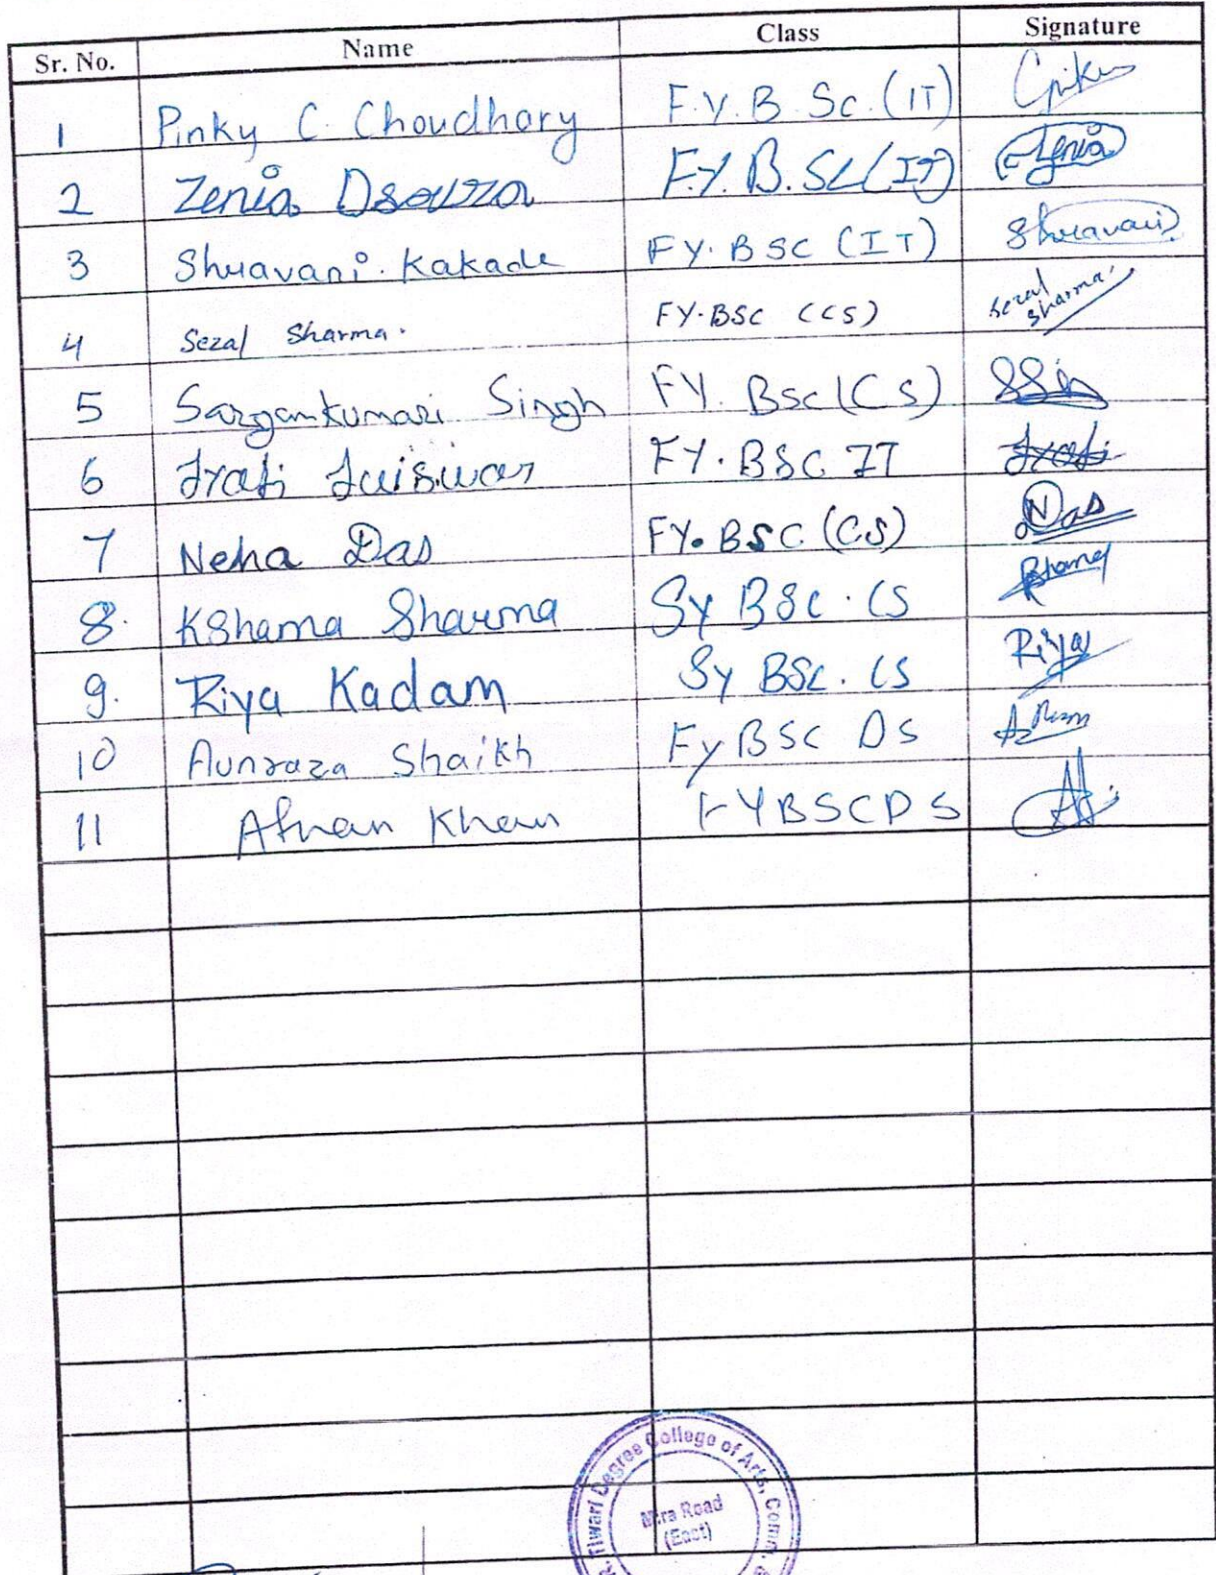 Sr. No. Name Class Signature
1 Pinky C. Choudhary F.Y.B Sc.(IT)
2 Zenia Dsouza F.Y.B.Sc(IT) Zenia
3 Shravani. Kakade FY.BSC (IT) Shravani
4 Sezal Sharma. FY.BSC (CS) Sezal Sharma.
5 Sargamkumari Singh FY. BSc(CS) SSin
6 FY.BSC IT
7 Neha Das FY.BSC (CS) NDas
8. Kshama Sharma Sy BSc. CS
9. Riya Kadam Sy BSc. CS Riya
10 Aunraza Shaikh Fy BSC DS
11 Afnan Khan FYBSCDS
R. Tiwari Degree College of Arts, Comm. &
Mira Road
(East)